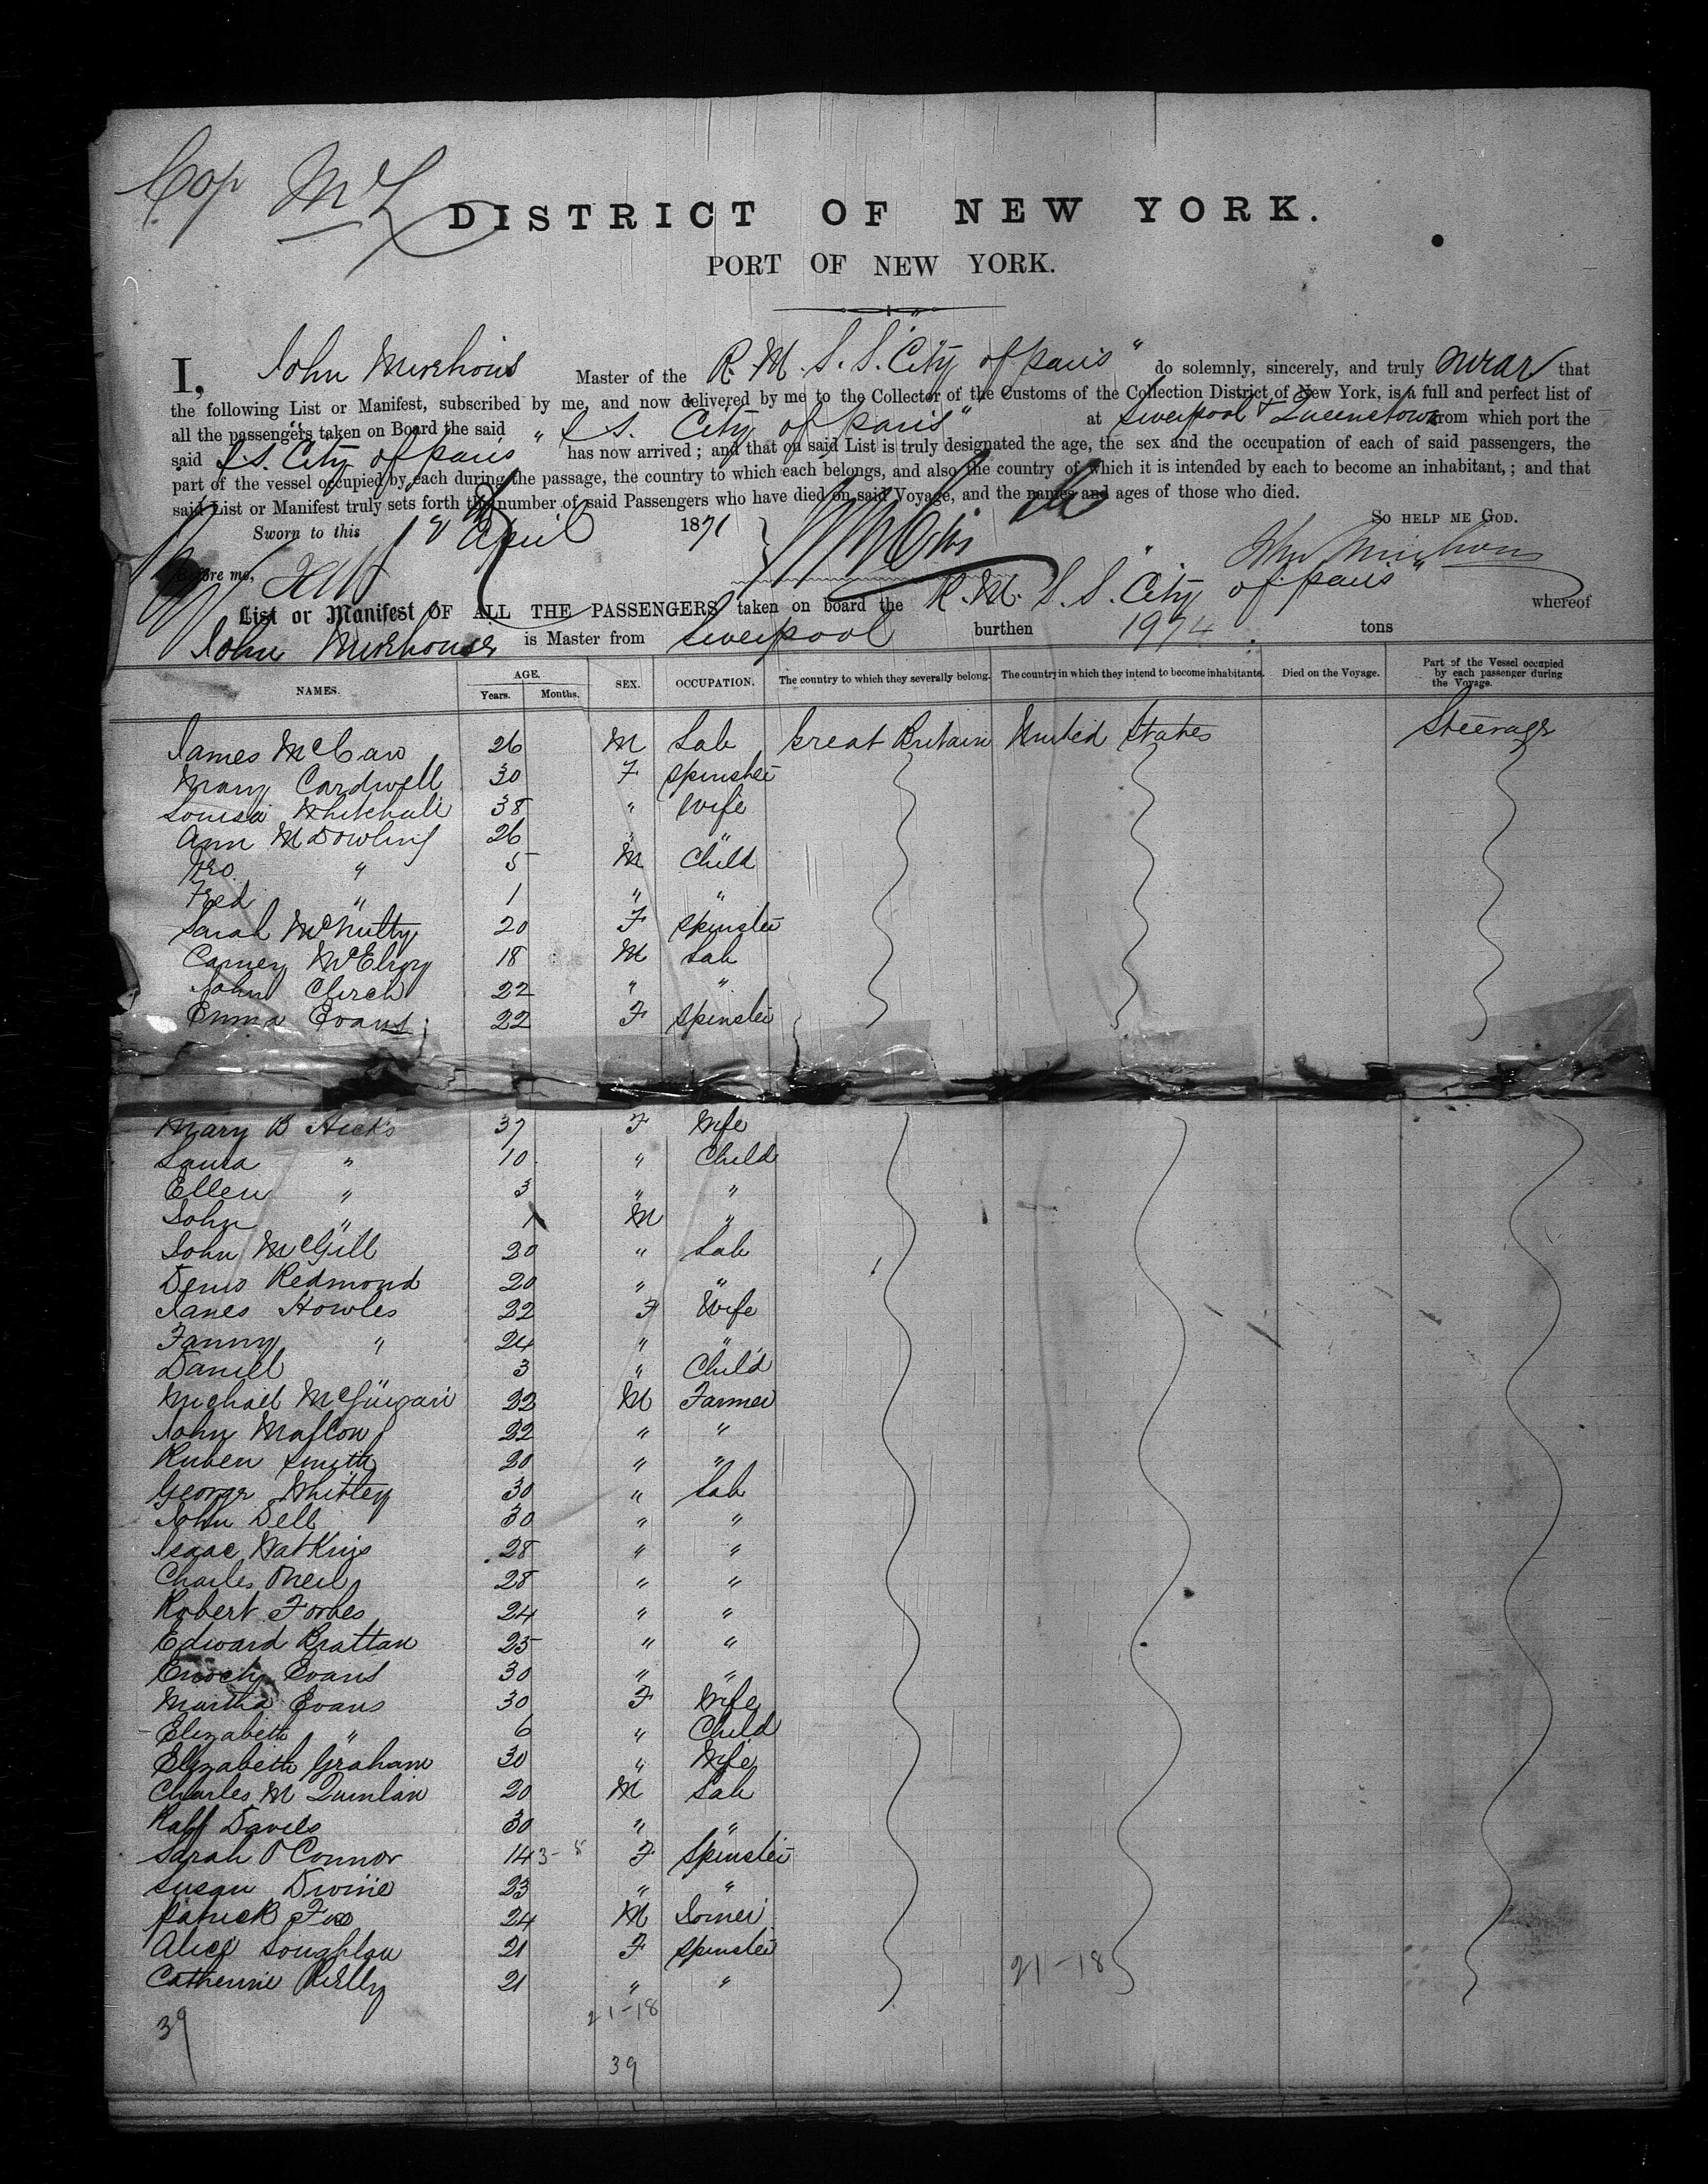 Cop McL
DISTRICT OF NEW YORK.
PORT OF NEW YORK.
I, John Mirehouse Master of the R. M. S. S. "City of Paris" do solemnly, sincerely, and truly swear that
the following List or Manifest, subscribed by me, and now delivered by me to the Collector of the Customs of the Collection District of New York, is a full and perfect list of
all the passengers taken on Board the said "S S. City of Paris" at Liverpool & Queenstown from which port the
said S.S. "City of Paris" has now arrived; and that on said List is truly designated the age, the sex and the occupation of each of said passengers, the
part of the vessel occupied by each during the passage, the country to which each belongs, and also the country of which it is intended by each to become an inhabitant,; and that
said List or Manifest truly sets forth the number of said Passengers who have died on said Voyage, and the names and ages of those who died.
SO HELP ME GOD.
Sworn to this April 1871
John Mirehouse
Before me,
List or Manifest OF ALL THE PASSENGERS taken on board the R. M. S. S. "City of Paris" whereof
John Mirehouse is Master from Liverpool burthen 1974 tons
NAMES. AGE. Years. Months. SEX. OCCUPATION. The country to which they severally belong. The country in which they intend to become inhabitants. Died on the Voyage. Part of the Vessel occupied by each passenger during the Voyage.
James McCaw 26 M Lab Great Britain United States Steerage
Mary Cardwell 30 F Spinster
Louisa Whitehall 38 " Wife
Ann McDowling 26 " "
Geo. " 5 M Child
Fred " 1 " "
Sarah McNulty 20 F Spinster
Carney McElroy 18 M Lab
John Clirch 22 " "
Emma Evans 22 F Spinster
Mary B Hicks 37 F Wife
Laura " 10 " Child
Ellen " 3 " "
John " 1 M "
John McGill 20 " Lab
Denis Redmond 20 " "
Janes Howles 22 F Wife
Fanny " 24 " "
Daniel 3 " Child
Michael McGuigan 22 M Farmer
John Maflow 22 " "
Ruben Smith 20 " "
George Whitley 30 " Lab
John Dell 30 " "
Isaac Watkins 28 " "
Charles Oneil 28 " "
Robert Forbes 24 " "
Edward Brattan 25 " "
Enoch Evans 30 " "
Martha Evans 30 F Wife
Elizabeth " 6 " Child
Elizabeth Graham 30 " Wife
Charles M Quinlan 20 M Lab
Ralf Davies 30 " "
Sarah O'Connor 14 3-8 F Spinster
Susan Divine 23 " "
Patrick Fox 24 M Joiner
Alice Loughlan 21 F Spinster
Catherine Rielly 21 " " 21-18
21-18
39
39